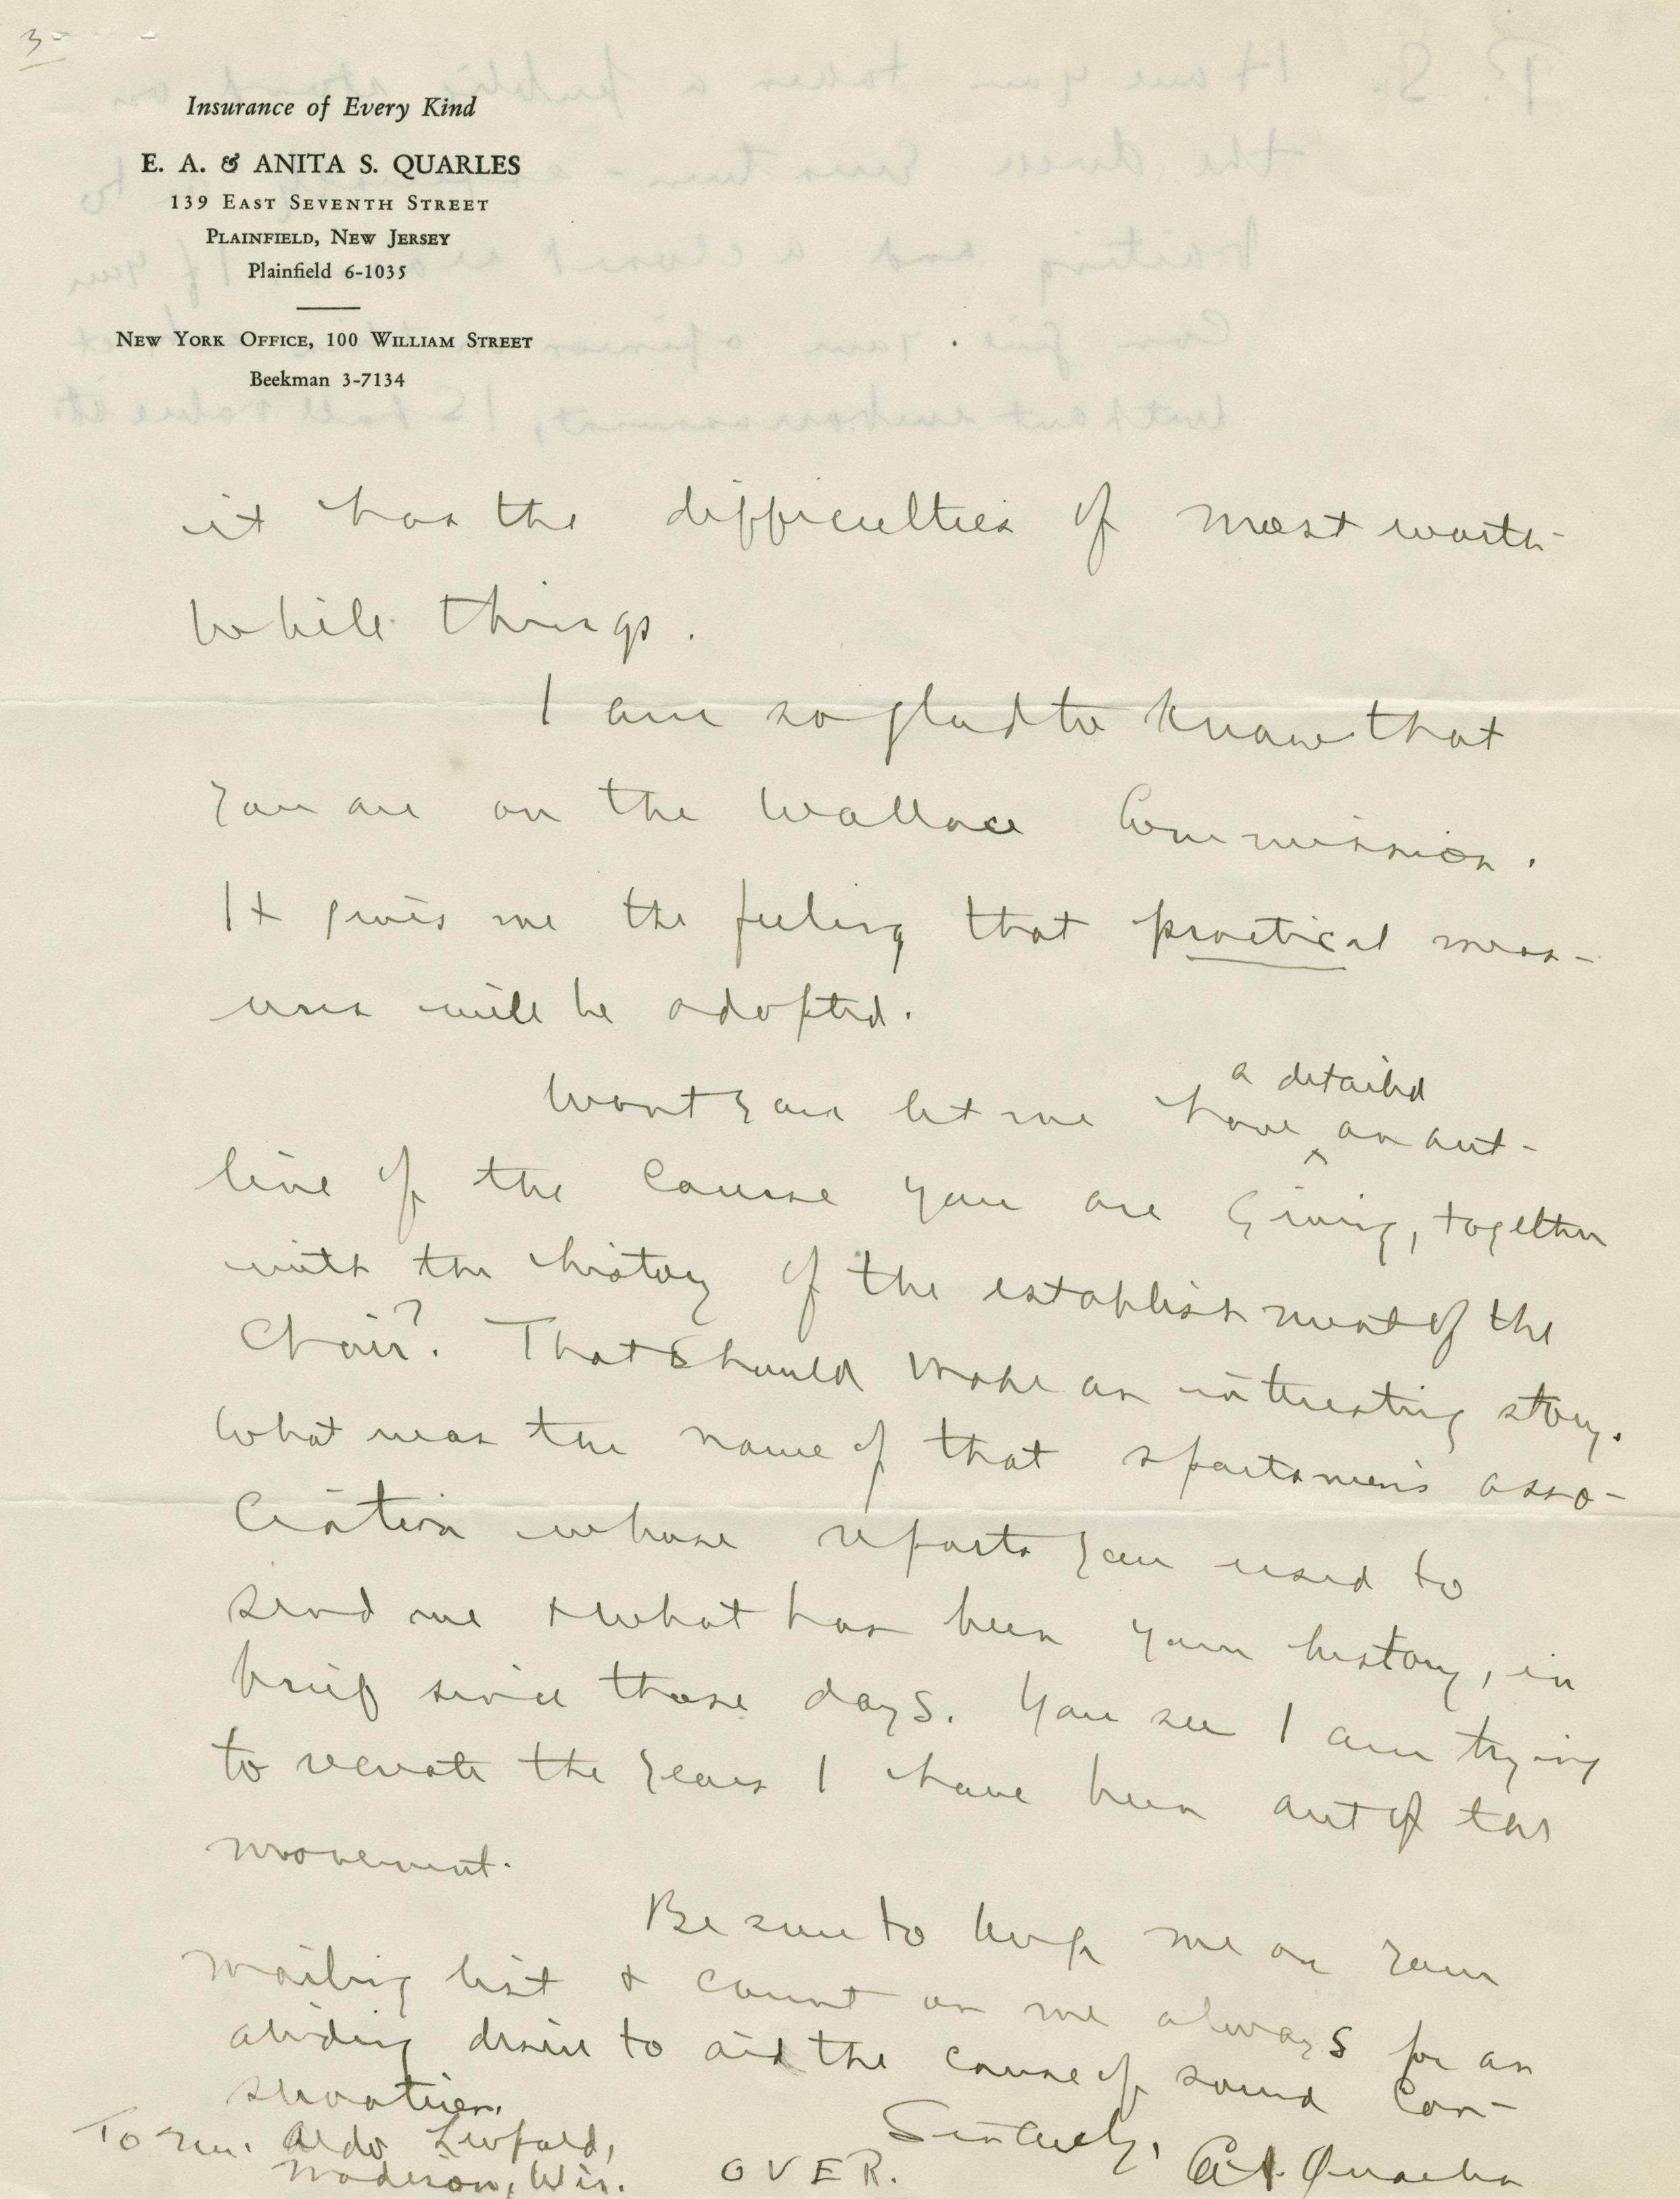 3-
Insurance of Every Kind
E. A. & ANITA S. QUARLES
139 EAST SEVENTH STREET
PLAINFIELD, NEW JERSEY
Plainfield 6-1035
NEW YORK OFFICE, 100 WILLIAM STREET
Beekman 3-7134
it has the difficulties of most worth-
while things.
I am so glad to know that
you are on the Wallace Commission.
It gives me the feeling that practical meas-
ures will be adopted.
a detailed
Wont you let me have ^ an out-
line of the course you are giving, together
with the history of the establishment of the
Chair? That should make an interesting story.
What was the name of that sportsmen's asso-
ciation whose reports you used to
send me & what has been your history, in
brief since those days. You see I am trying
to the years I have been out of the
movement.
Be sure to keep me on your
mailing list & count on me always for an
abiding desire to aid the cause of sound con-
servation.
Sincerely,
To Mr. Aldo Leopold,
Madison, Wis.
OVER.
E. A. Quarles